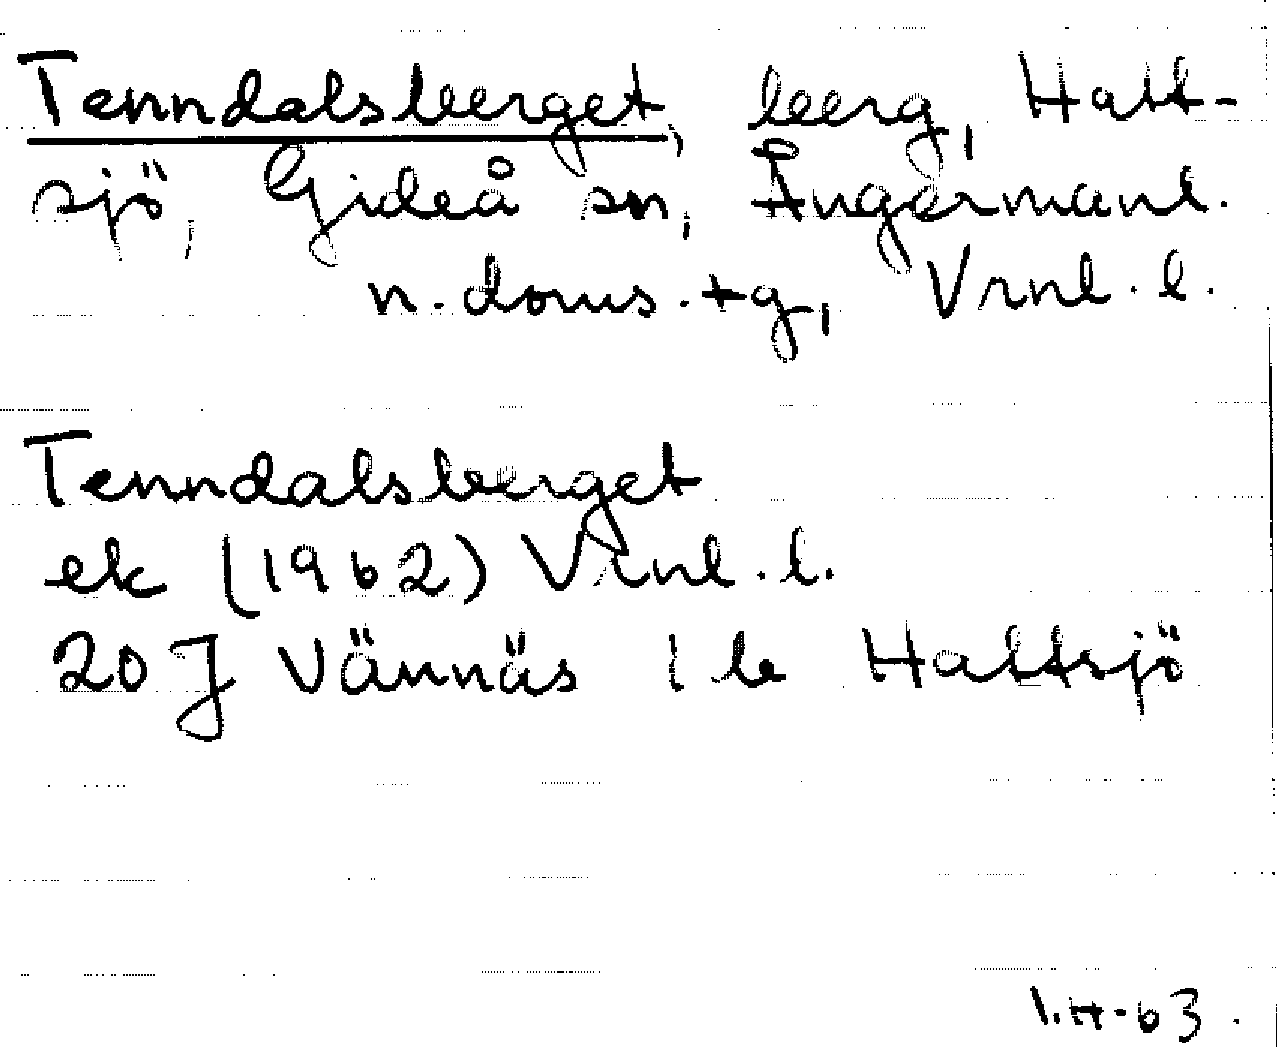 Tenndalsberget, berg, Hatt-
sjö, Gideå sn, Ångermanl.
n. doms. +g, Vrnl. l.
Tenndalsberget
ek (1962) Vrnl. l.
20J Vännäs i b Hattsjö
I.H-63.